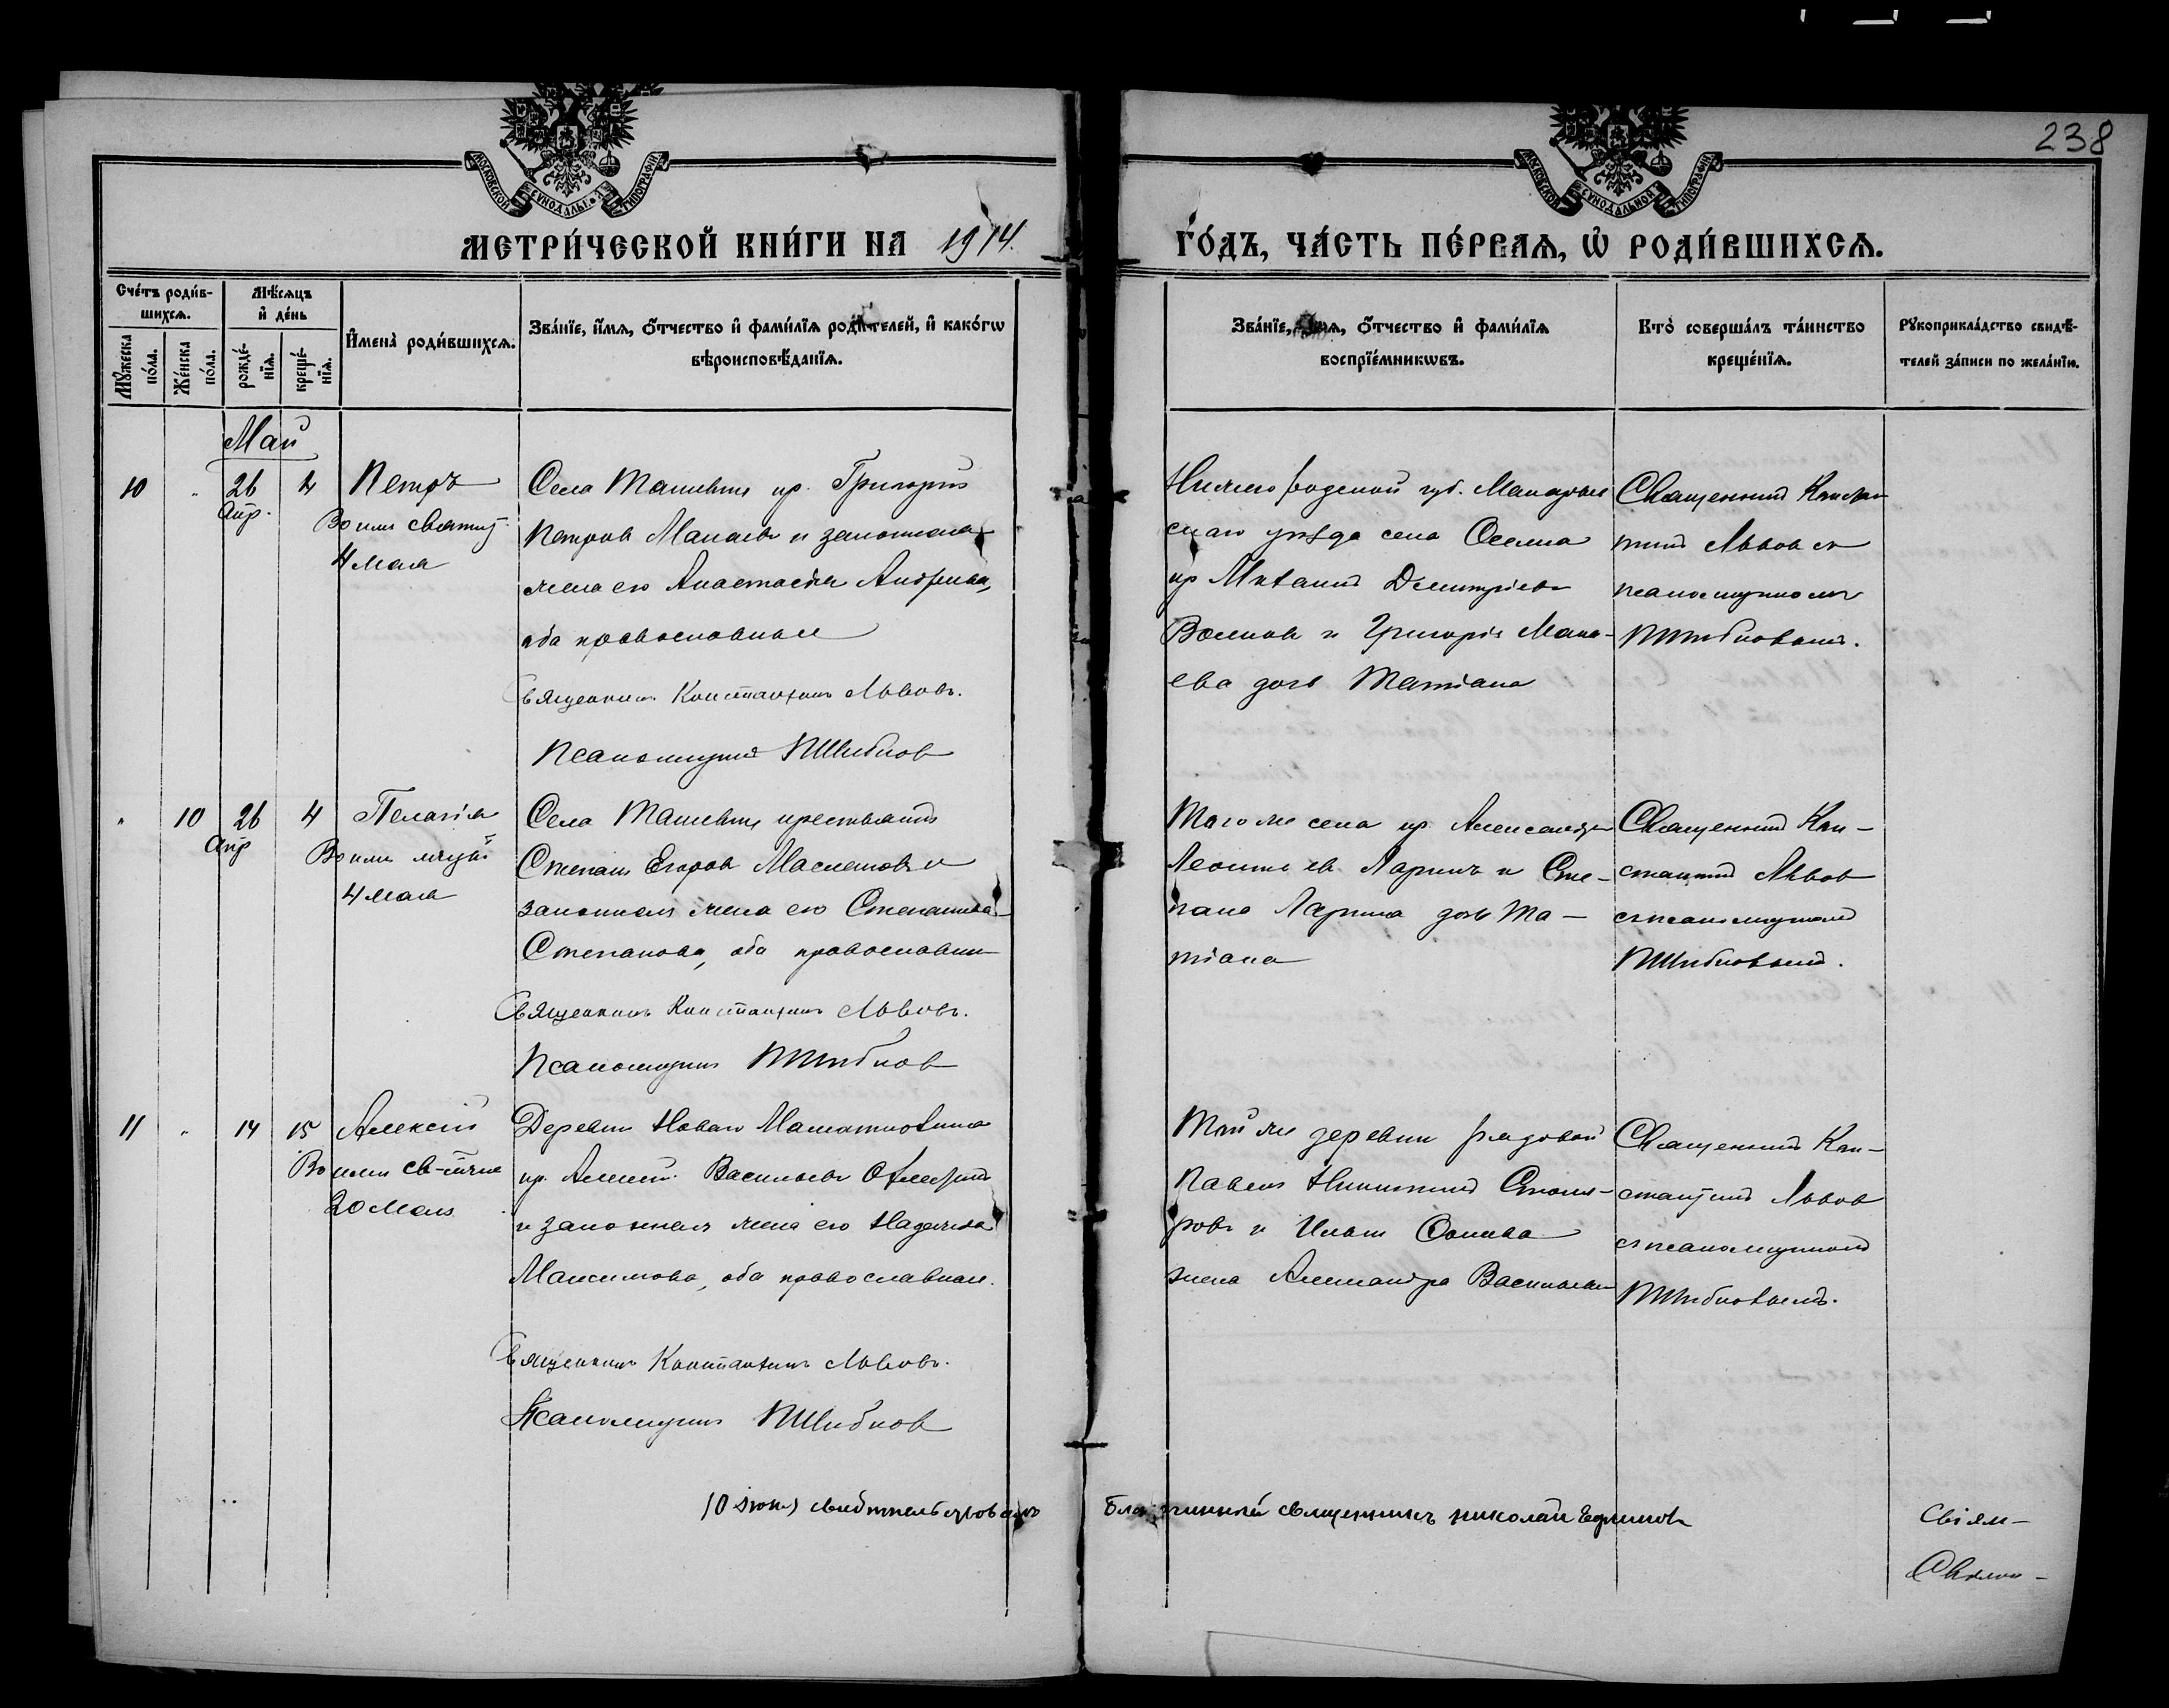 238
МЕТРИ́ЧЕСКОЙ КНИ́ГИ НА 1914.
ГО́ДЪ, ЧА́СТЬ ПЕ́РВАѦ, Ѡ РОДИ́ВШИХСѦ.
Сче́тъ роди́в-
шихсѧ.
Мꙋжеска по́ла.
Же́нска по́ла.
Мѣ́сѧцъ
и́ де́нь
рожде́-
нїѧ.
креще́-
нїѧ.
И҆мена̀ роди́вшихсѧ.
Зва́нїе, и҆́мѧ, ѻ҆́тчество и҆ фами́лїѧ роди́телей, и҆ како́гѡ
вѣроисповѣ́данїѧ.
Зва́нїе, и҆́мѧ, ѻ҆́тчество и҆ фами́лїѧ
воспрїе́мникѡвъ.
Кто̀ соверша́лъ та́инство
креще́нїѧ.
Рꙋкоприкла́дство свидѣ́-
телей за́писи по жела́нїю.
Май
10 " 26 4 Петръ
Апр.
Во имя святаго
4 мая
Села Ташевки кр. Григорій
Петровъ Манаевъ и законная
жена его Анастасія Андреева,
оба православные
Священникъ Константинъ Львовъ.
Псаломщикъ
Нижегородской губ. Макарьев
скаго уѣзда села Оселка
кр
Волковъ и Григорія Мана-
ева дочь Татіана
Священникъ Констан
тинъ Львовъ съ
псаломщикомъ
" 10 26 4 Пелагія
Апр
Во имя муч.
4 мая
Села Ташевки крестьянинъ
Степанъ Егоровъ Масленовъ и
законная жена его Степанида
Степанова, оба православные
Священникъ Константинъ Львовъ.
Псаломщикъ
Того же села кр. Александръ
Леонтьевъ Ларинъ и Сте-
пана Ларина дочь Та-
тіана
Священникъ Кон-
стантинъ Львовъ
съ псаломщикомъ
11 " 14 15 Алексій
Во имя св-теля
20 мая
Деревни
кр. Алексѣй Васильевъ
и законная жена его Надежда
Максимова, оба православные.
Священникъ Константинъ Львовъ.
Псаломщикъ
Той же деревни рядовой
Павелъ Никитинъ Столя-
ровъ и
жена Александра Васильева
Священникъ Кон-
стантинъ Львовъ
съ псаломщикомъ
10 іюня свидѣтельствовалъ Благочинный священникъ Николай